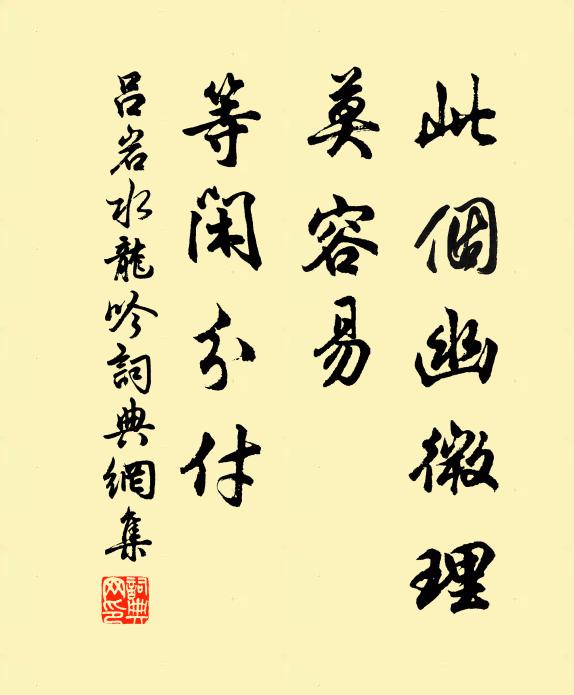 此個幽微理
莫容易
等閑分付
吕岩水龍吟詞典網集
詞典网印